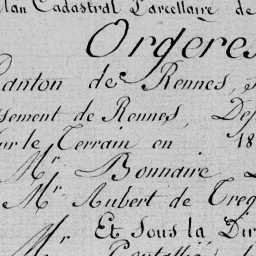 Plan Cadastral Parcellaire de
Orgères
Canton de Rennes,
sement de Rennes, Dép
sur le Terrain en 18
Mr Bonnaire
Mr Aubert de Treg
Et Sous la Dir
Mr